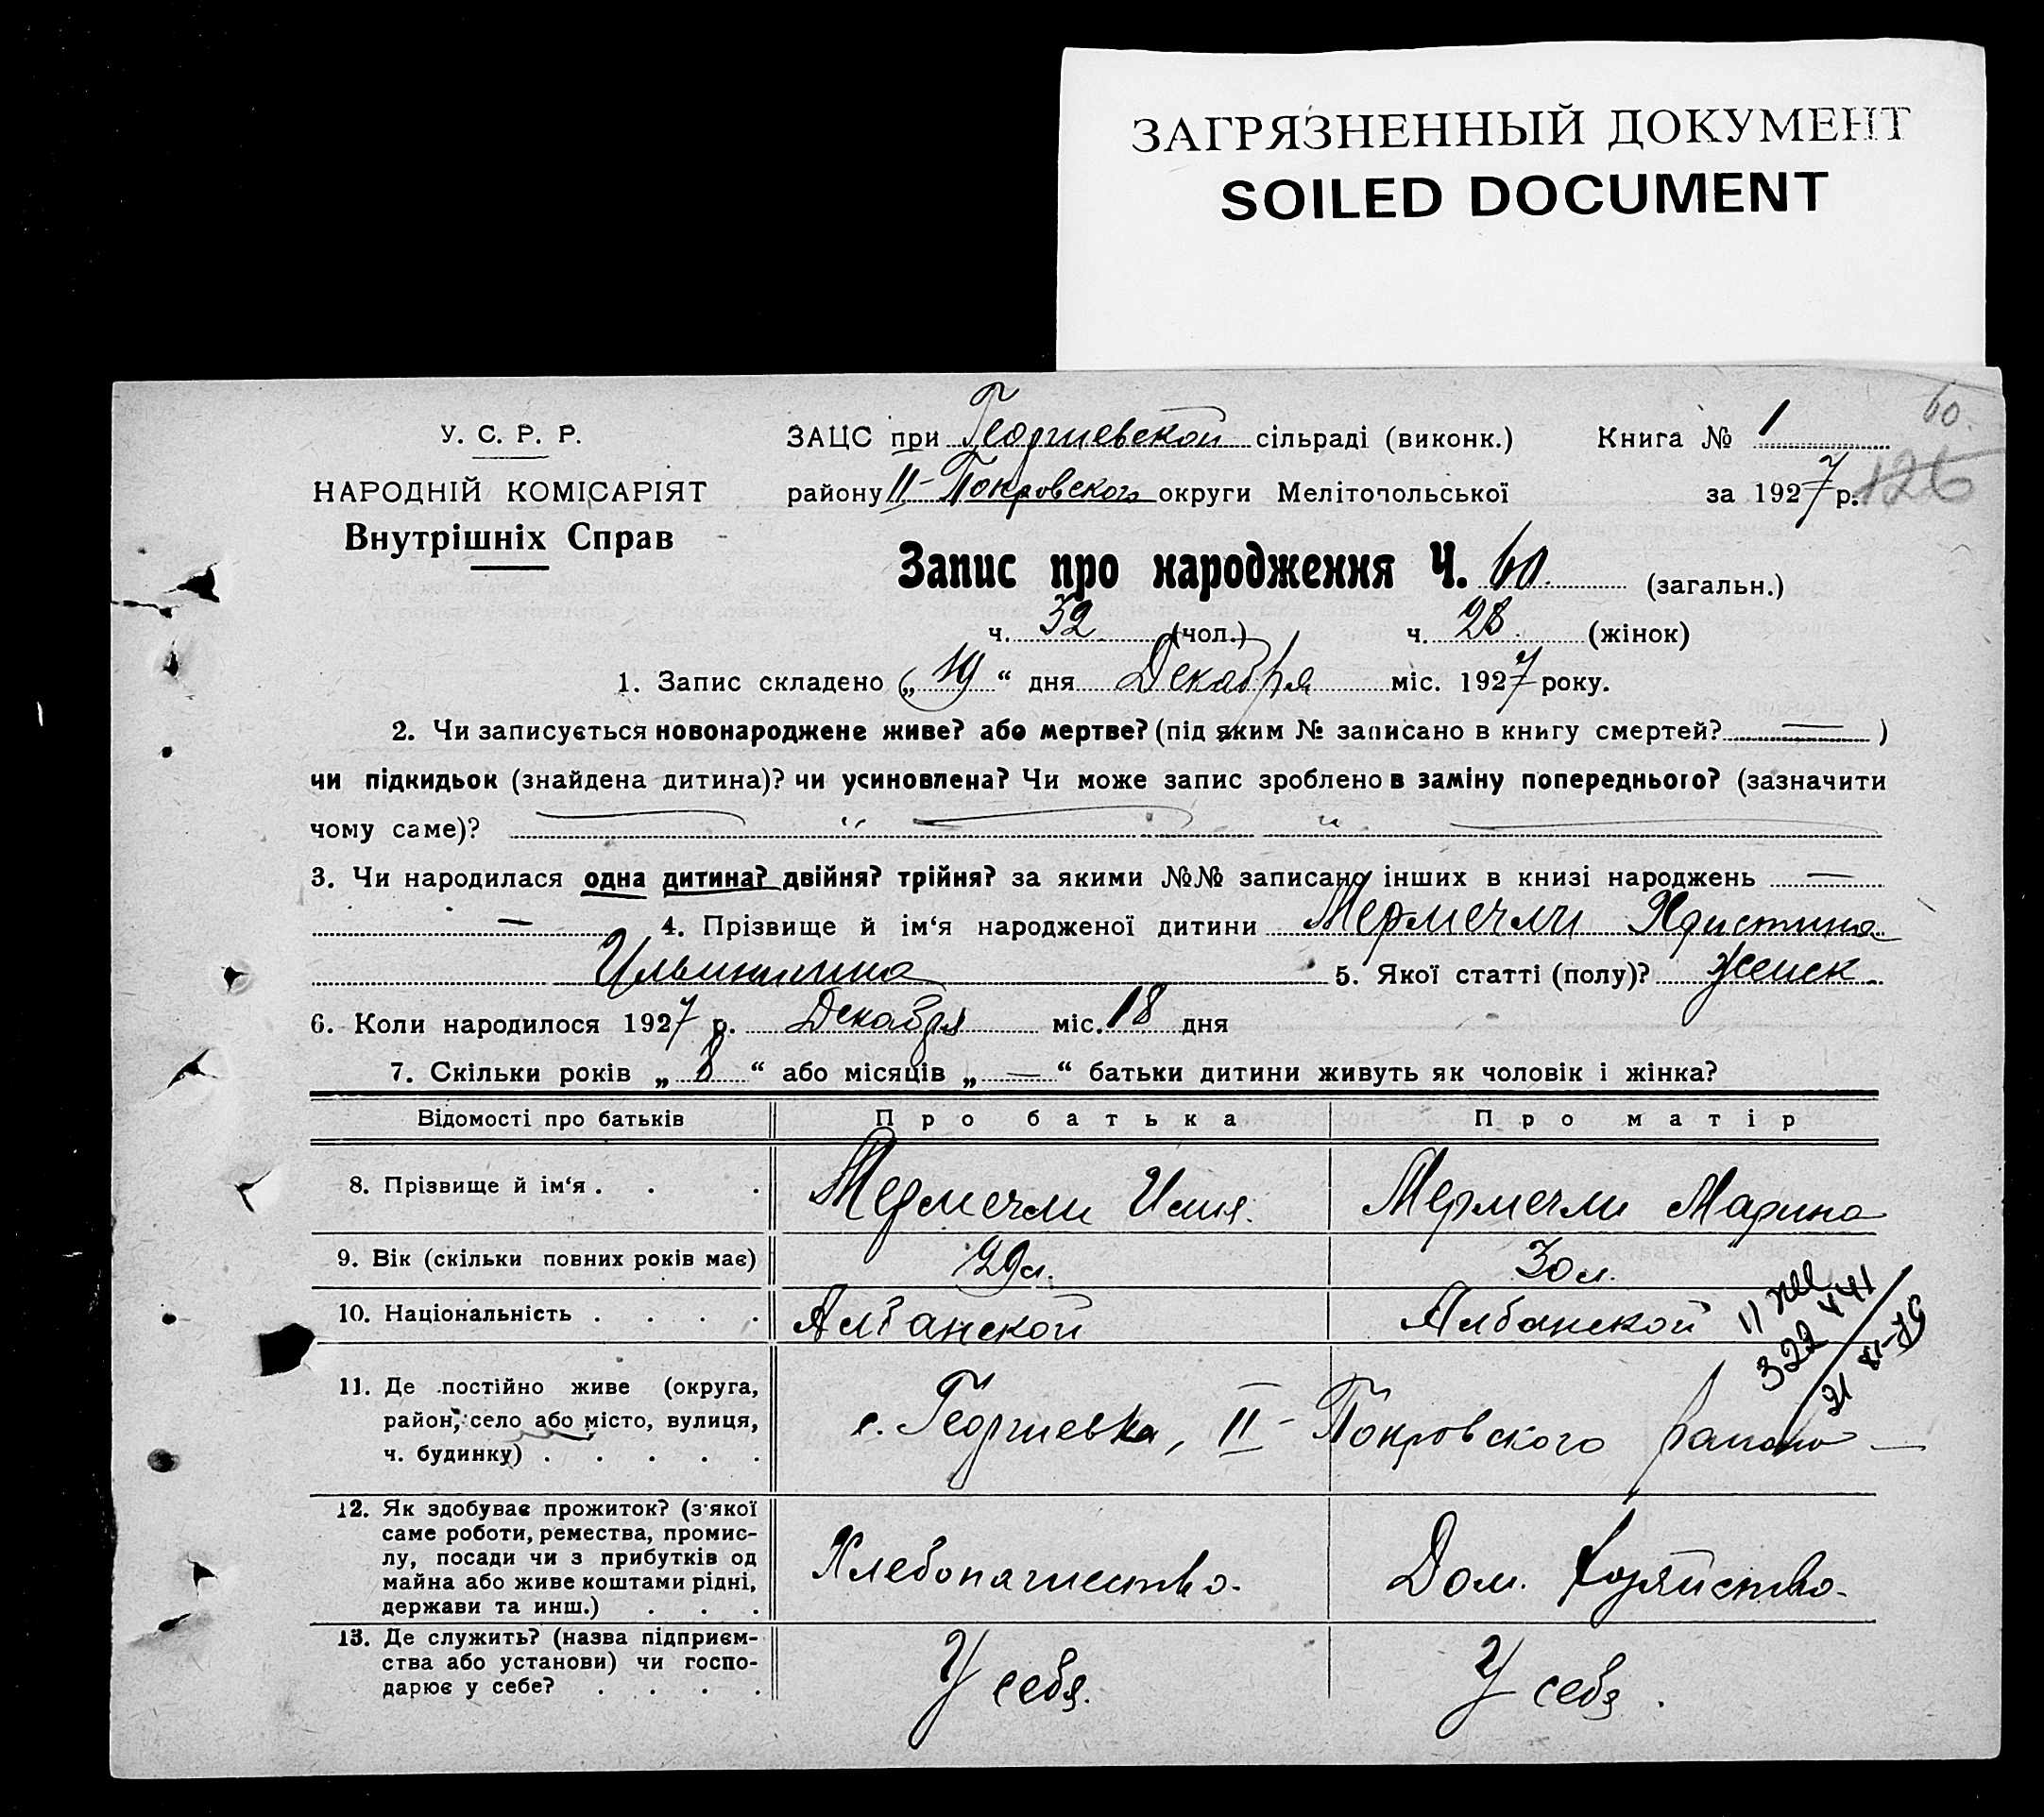 ЗАГРЯЗНЕННЫЙ ДОКУМЕНТ
SOILED DOCUMENT
60.
У. С. Р. Р.
НАРОДНІЙ КОМІСАРІЯТ
Внутрішніх Справ
ЗАЦС при Георгиевской сільраді (виконк.) Книга № 1
району II-Покровского округи Мелітопольської за 1927 р. 126
Запис про народження Ч. 60 (загальн.)
ч. 32 (чол.) ч. 28 (жінок)
1. Запис складено „19“ дня Декабря міс. 1927 року.
2. Чи записується новонароджене живе? або мертве? (під яким № записано в книгу смертей? — )
чи підкидьок (знайдена дитина)? чи усиновлена? Чи може запис зроблено в заміну попереднього? (зазначити
чому саме)? — „ — „ —
3. Чи народилася одна дитина? двійня? трійня? за якими №№ записано інших в книзі народжень —
— 4. Прізвище й ім‘я народженої дитини Мермечли Христина
Ильинична 5. Якої статті (полу)? Женск.
6. Коли народилося 1927 р. Декабря міс. 18 дня
7. Скільки років „8“ або місяців „—“ батьки дитини живуть як чоловік і жінка?
Відомості про батьків Про батька Про матір
8. Прізвище й ім‘я . . . Мермечли Илья. Мермечли Марина
9. Вік (скільки повних років має) 29 л. 30 л.
10. Національність . . . . Албанской Албанской
11. Де постійно живе (округа,
район, село або місто, вулиця,
ч. будинку) . . . . .
с. Георгиевка, II-Покровского района —
12. Як здобуває прожиток? (з якої
саме роботи, ремества, промис-
лу, посади чи з прибутків од
майна або живе коштами рідні,
держави та инш.) . . .
Хлебопашество. Дом. хозяйство.
13. Де служить? (назва підприєм-
ства або установи) чи госпо-
дарює у себе? . . . .
У себя. У себя.